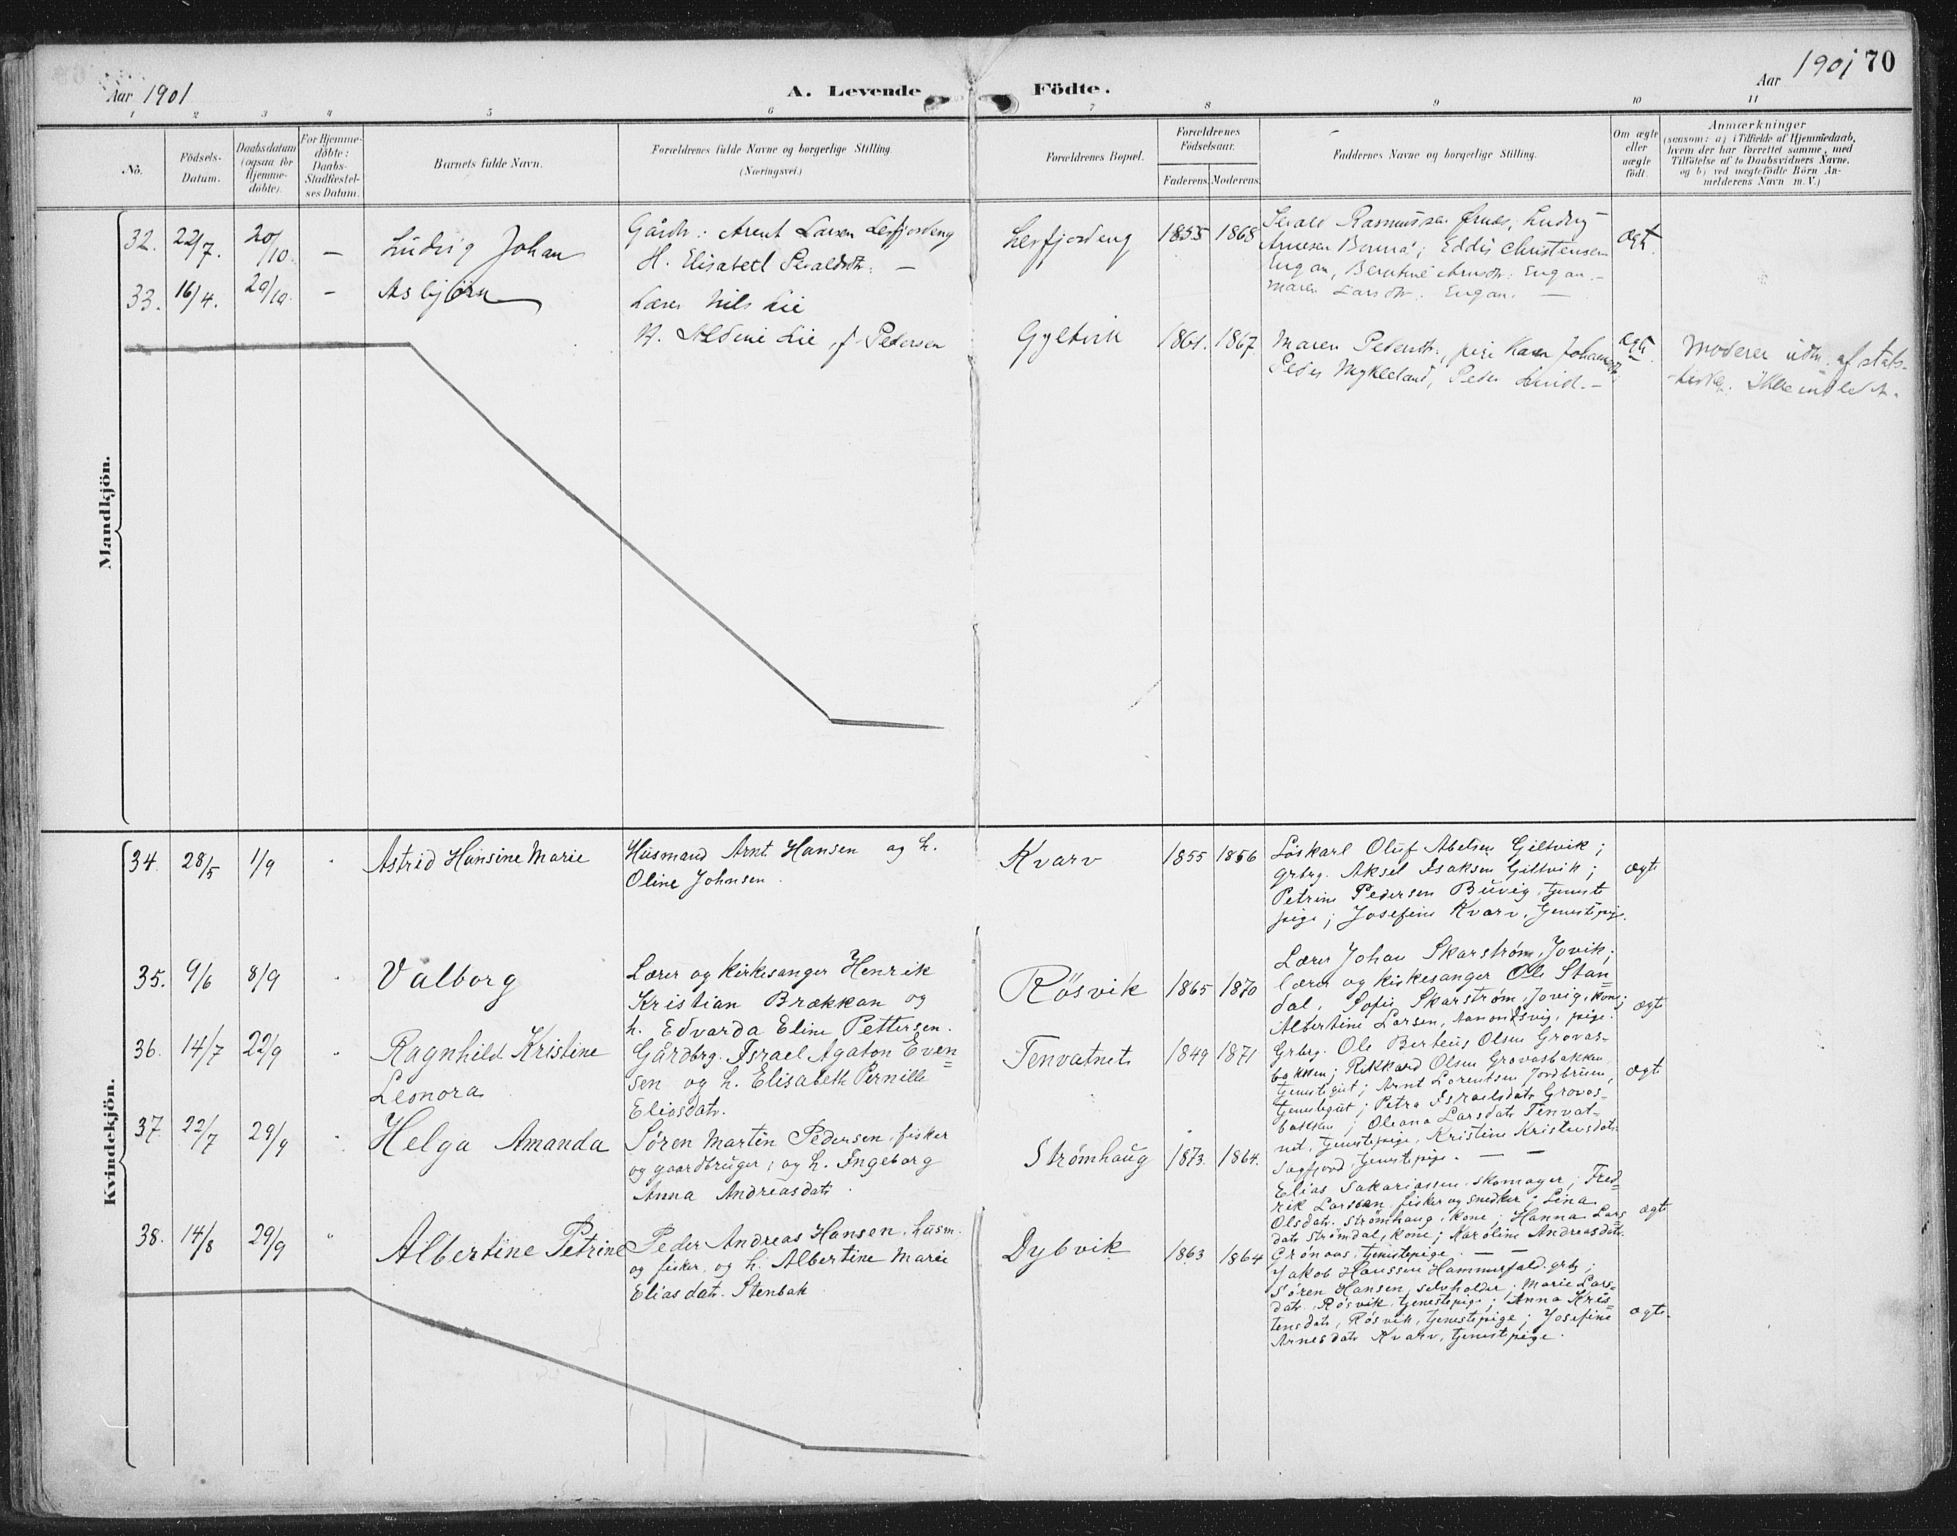 Aar 1901
A. Levende Födte.
Aar 1901 70
1 2 3 4 5 6 7 8 9 10 11
No.
Födsels-
Datum.
Daabsdatum
(ogsaa for
Hjemme-
döbte).
For Hjemme-
döbte:
Daabs-
Stadfæstel-
ses Datum.
Barnets fulde Navn.
Forældrenes fulde Navne og borgerlige Stilling.
(Næringsvei.)
Forældrenes Bopæl.
Forældrenes
Födselsaar.
Faderens. Moderens.
Faddernes Navne og borgerlige Stilling.
Om ægte
eller
uægte
födt.
Anmærkninger
(saasom: a) i Tilfælde af Hjemmedaab,
hvem der har forrettet samme, med
Tilföielse af to Daabsvidners Navne,
og b) ved uægtefödte Börn An-
melderens Navn m. V.)
Mandkjön.
32. 22/7. 20/10 – Ludvig Johan
Gårdbr: Arent Larsen Leifjordeng
H. Elisabeth –
Leifjordeng 1855 1868
Rasmussen Ludvig
Arnesen Eddis Christensen
Engan, Engan. –
Maren Larsdtr. Engan. –
ægte
33. 16/4. 20/10 – Asbjörn
Lærer Nils Lie
H. Lie, f. Pedersen
Gyltvik 1861. 1867.
Maren Pedersdtr., pige
Peder Mykleland, Peder –
ægte
Moderen udm. af stats-
kirken. Ikke
Kvindekjön.
34. 28/5 1/9 " Astrid Hansine Marie
Husmand Arnt Hansen og h.
Oline Johnsen.
Kvarv 1855 1856
Löskarl Oluf Abelsen Giltvik;
grbrg. Aksel Isaksen Giltvik;
Petrine Pedersen Buvig, tjeneste
pige; Josefine Kvarv, tjenestepige.
ægte
35. 9/6 8/9 " Valborg
Lærer og kirkesanger Henrik
Kristian Brækkan og
h. Edvarda Eline Pettersen.
Rösvik 1865 1870
Lærer Johan Skarstrøm, Jovik;
lærer og kirkesanger Ole Stan=
dal; Sofie Skarstrøm, Jovig, kone;
Albertine Larsen, pige.
ægte
36. 14/7 22/9 " Ragnhild Kristine
Leonora
Gårdbrg. Israel Agaton Even=
sen og h. Elisabeth Pernille
Eliasdatr.
Tenvatnet 1849 1871
Grbrg. Ole Berteus Olsen Grovas-
bakken; Rikkard Olsen Grovasbakken,
tjenestegut; Arnt Lorentsen Jordbruen,
tjenestegut; Petra Israelsdatr Grovas-
bakken; Oleana Larsdatr Tenvat-
net, tjenestepige, Kristine Kristensdatr
Sagfjord, tjenestepige. – –
ægte
37. 22/7 29/9 " Helga Amanda
Søren Martin Pedersen, fisker
og gaardbruger; og h. Ingeborg
Anna Andreasdatr.
Strømhaug 1873. 1864.
Elias Sakariassen skomager; Fred=
rik Larssen, fisker og snedker; Lina
Olsdatr. Strømhaug, kone; Hanna Lars
datr Strømdal, kone; Karoline Andreasdatr.
Grönaas, tjenestepige. – –
ægte
38. 14/8 29/9 " Albertine Petrine
Peder Andreas Hansen, husm.
og fisker, og h. Albertine Marie
Eliasdatr. Stenbak
Dybvik 1863 1864
Jakob Hanssen Hammerfald, grbg;
Søren Hansen, selvholder; Marie Lars-
datr. Røsvik, tjenestepige; Anna Kris=
tensdatr, Røsvik, tjenestepige; Josefine
Arnesdatr Kvarv, tjenestepige.
ægte.